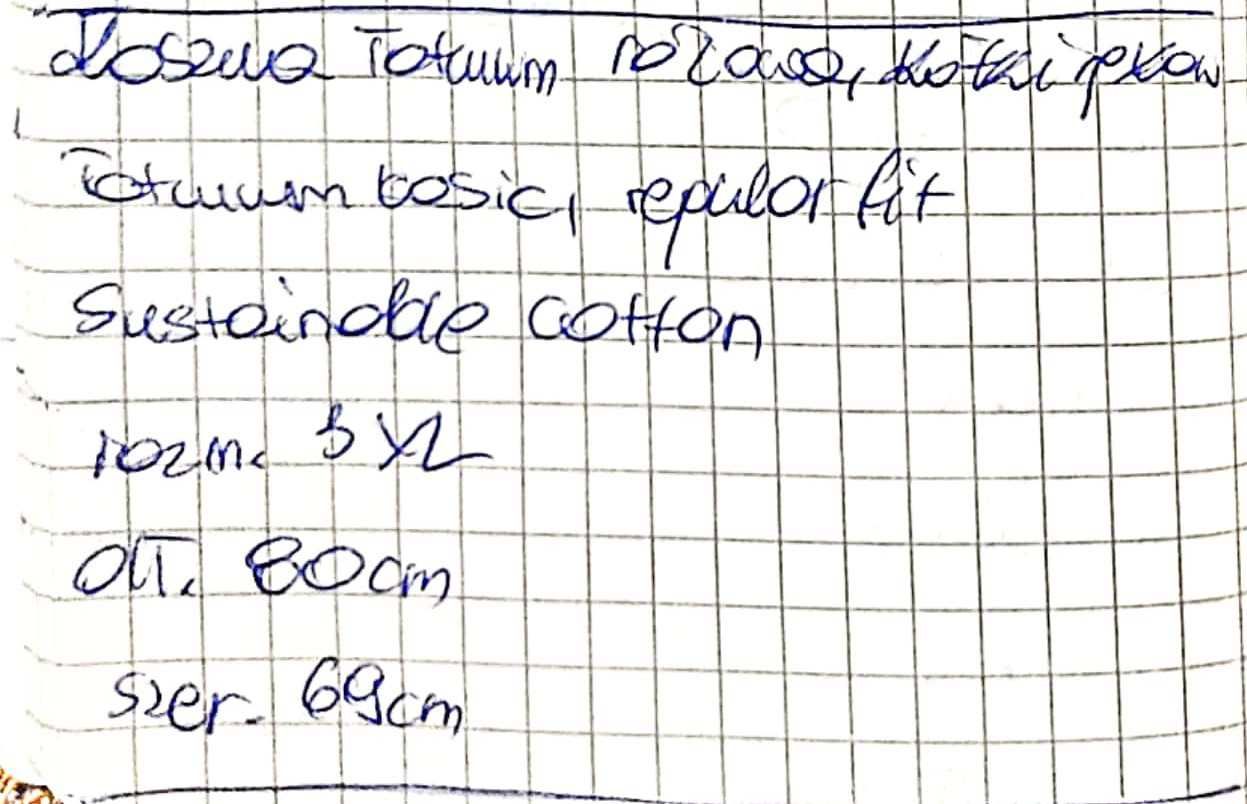 Koszula Totuum różowa, krótki rękaw
Totuum basic, regular fit
Sustainable cotton
rozm. 3XL
dł. 80cm
szer. 69cm